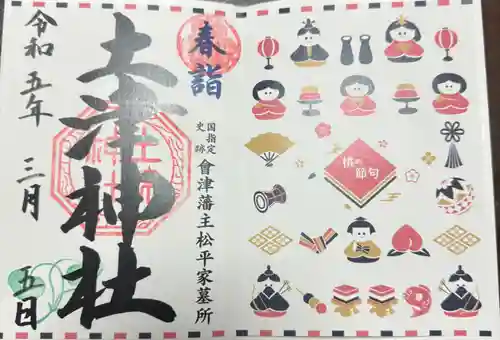 春詣
國指定史跡 會津藩主松平家墓所
土津神社
令和五年 三月 五日
桃の節句